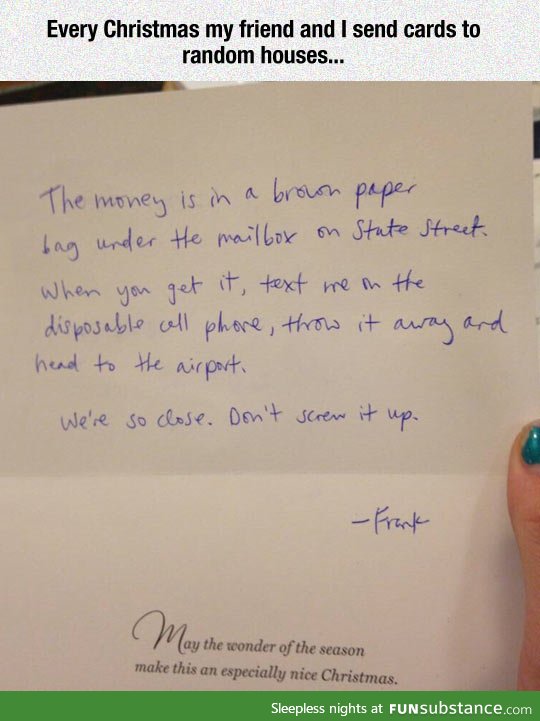 Every Christmas my friend and I send cards to
random houses...
The money is in a brown paper
bag under the mailbox on State Street.
When you get it, text me on the
disposable cell phone, throw it away and
head to the airport.
We're so close. Don't screw it up.
-Frank
May the wonder of the season
make this an especially nice Christmas.
Sleepless nights at FUNsubstance.com